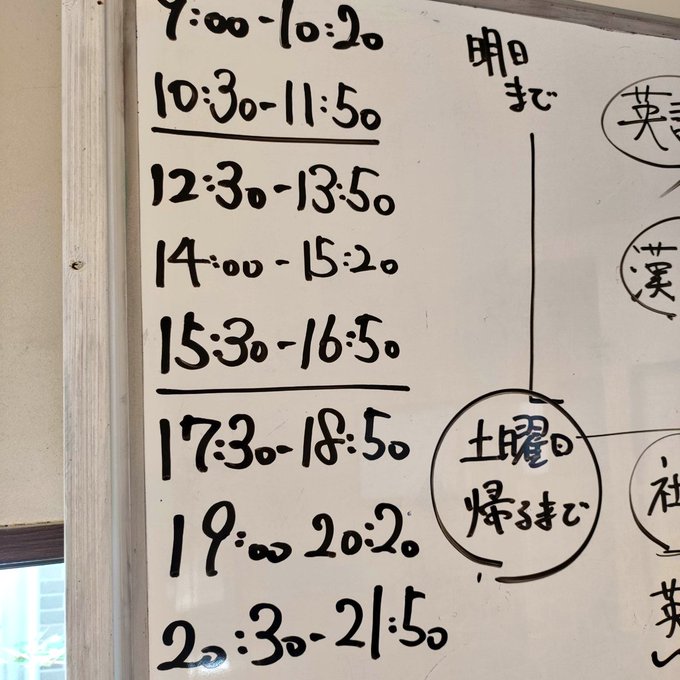 9:00-10:20
10:30-11:50
12:30-13:50
14:00-15:20
15:30-16:50
17:30-18:50
19:00 20:20
20:30-21:50
明日
まで
土曜日
帰るまで
英語
漢
社
英